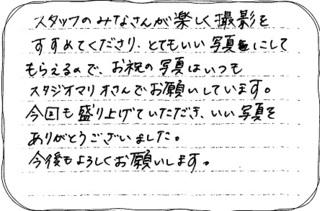 スタッフのみなさんが楽しく撮影を
すすめてくださり、とてもいい写真にして
もらえるので、お祝の写真はいつも
スタジオマリオさんでお願いしています。
今回も盛り上げていただき、いい写真を
ありがとうございました。
今後もよろしくお願いします。